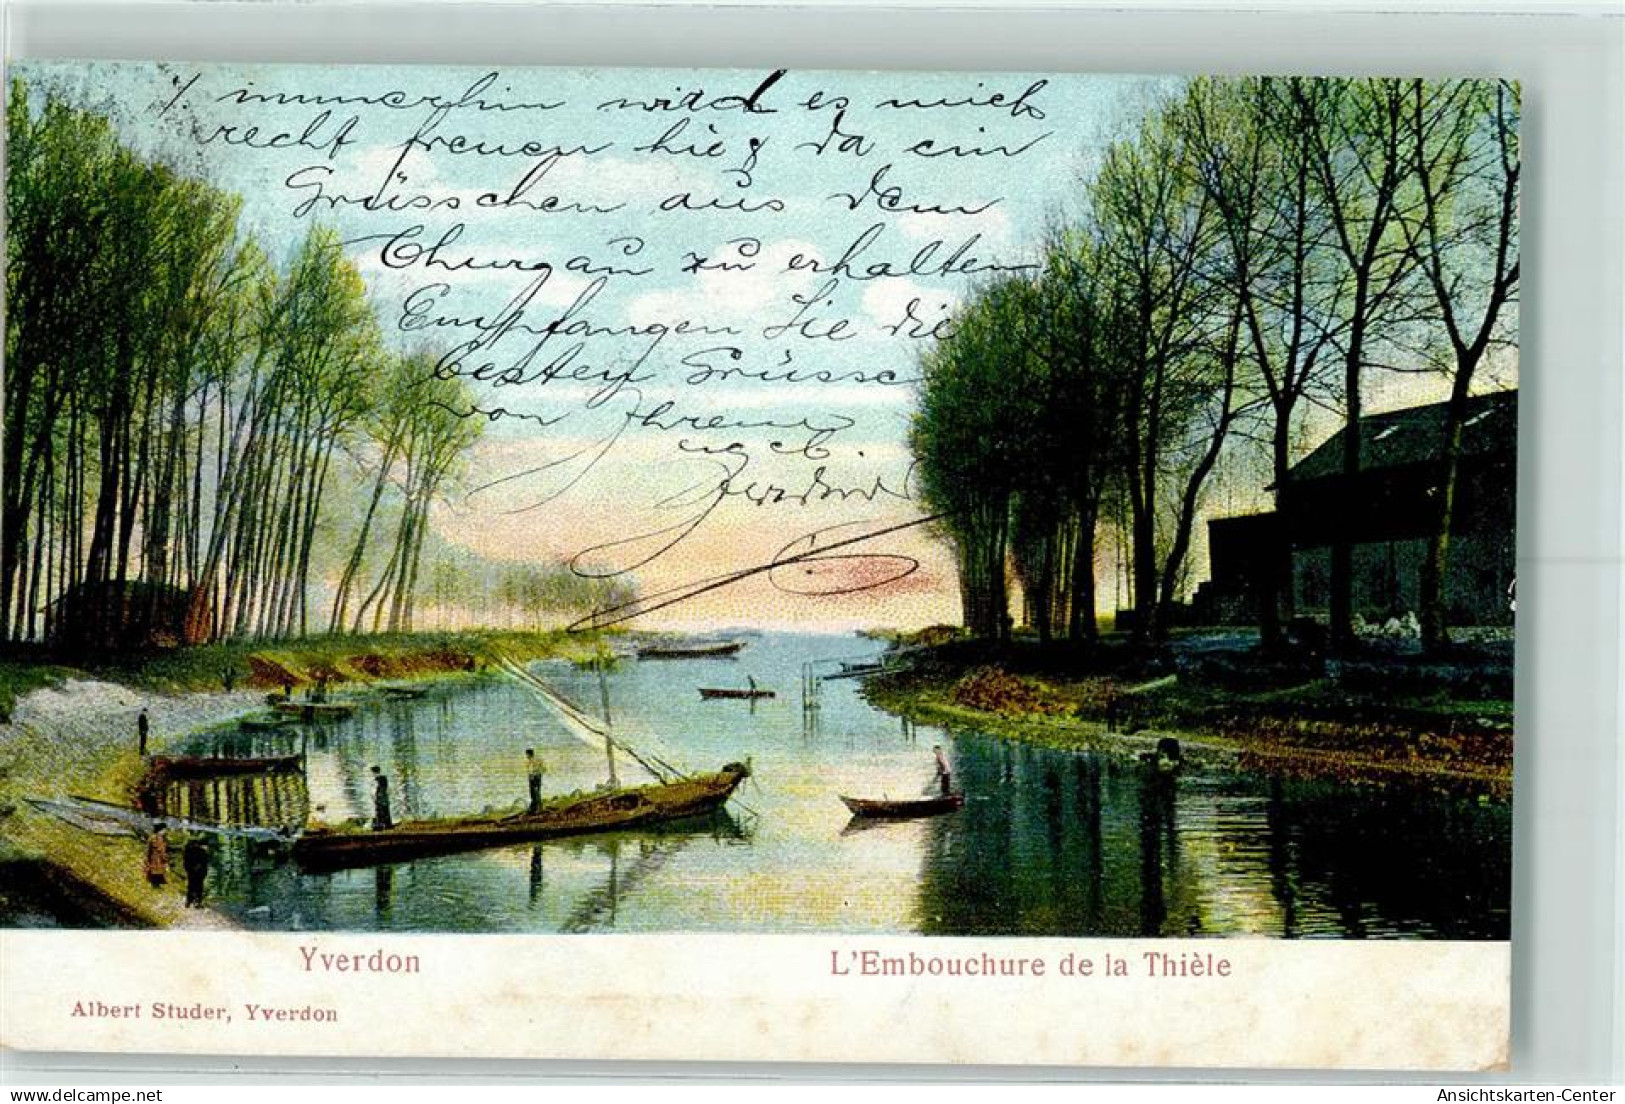 immerhin wird es mich
recht freuen hie & da ein
Grüsschen aus dem
Thurgau zu erhalten
Empfangen Sie die
besten Grüsse
von Ihrem
Yverdon
L'Embouchure de la Thièle
Albert Studer, Yverdon
Ansichtskarten-Center